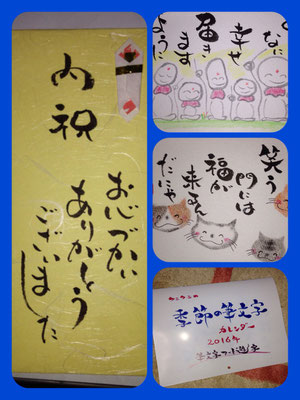 内祝
お心づかい
ありがとう
ございました
なに
幸せ
届きます
ように
笑う
門には
福が
来るん
だにゃ
季節の筆文字
カレンダー
2016年
筆文字アート